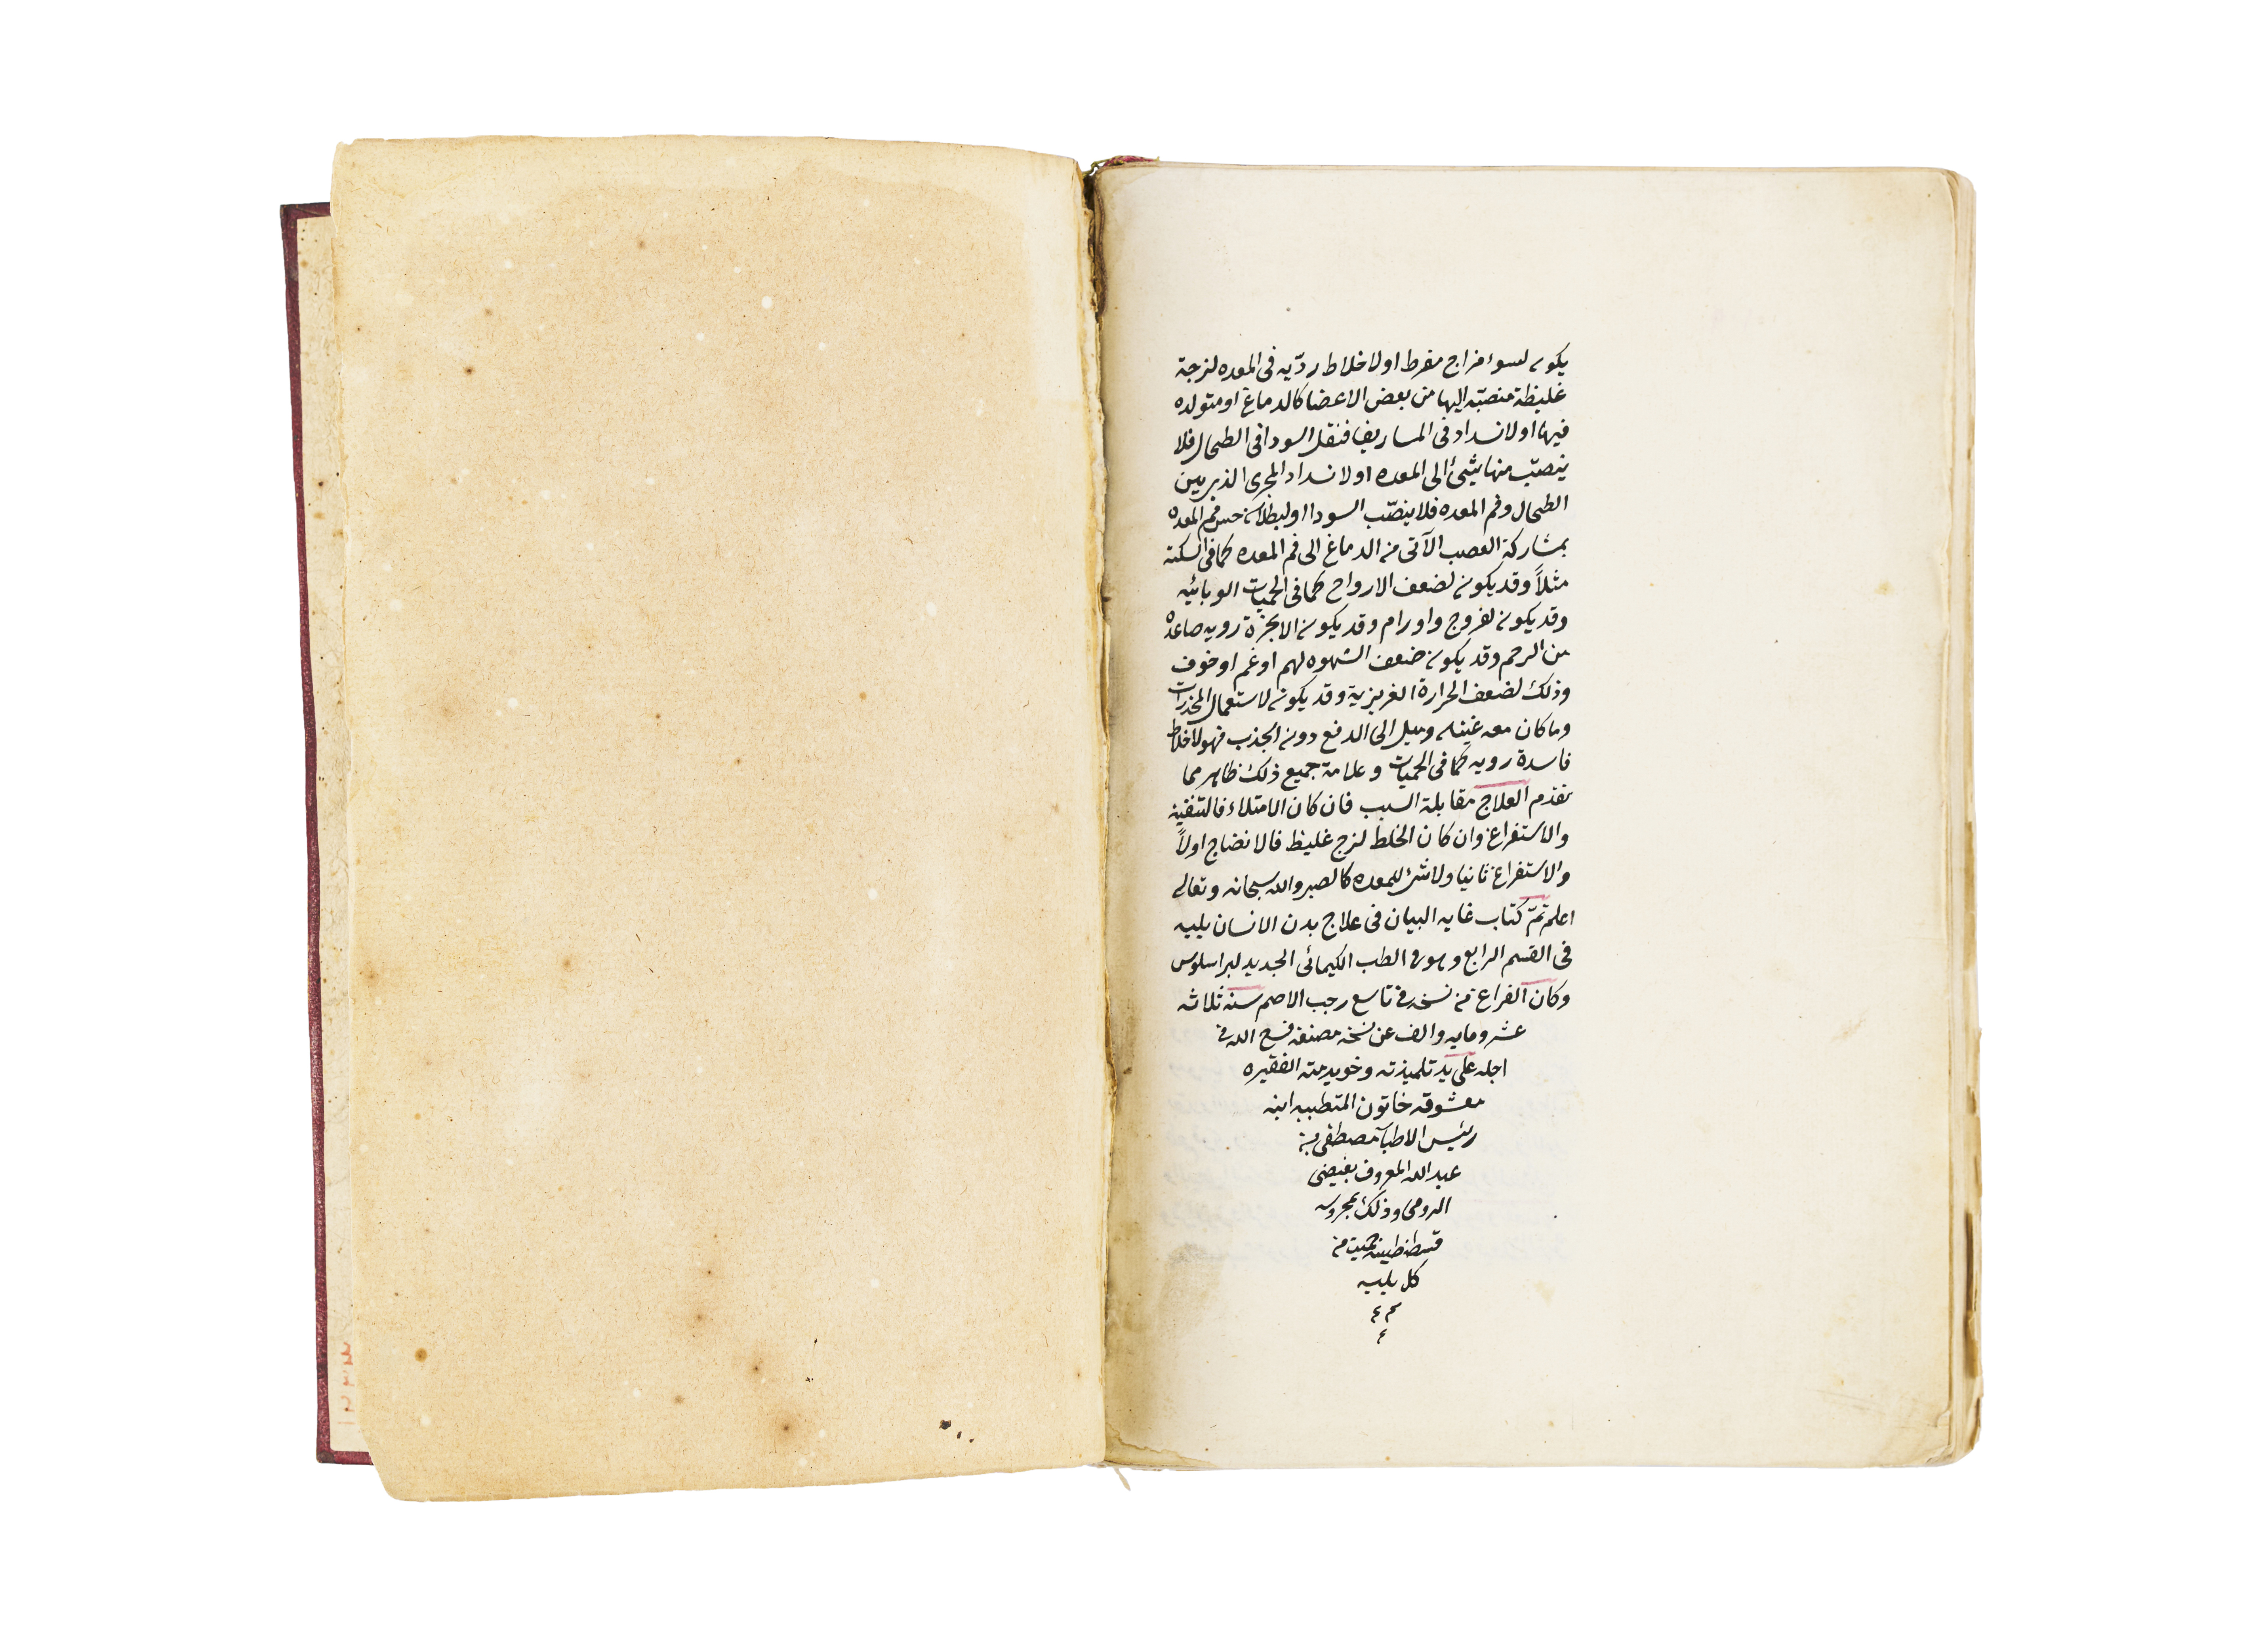 يكون لسوء مزاج مفرط او لاخلاط رديّه فى المعده لزجة
غليظة منصبّه اليها من بعض الاعضا كالدماغ او متولده
فيها او لانسداد فى الماساريقا فتقل السودا فى الطحال فلا
ينصبّ منها شئ الى المعده او لانسداد المجرى الذى بين
الطحال وفم المعده فلا ينصّب السودا او لبطلان حس فم المعده
بمشاركة العصب الآتى من الدماغ الى فم المعده كما فى السكته
مثلاً وقد يكون لضعف الارواح كما فى الحميات الوبائيه
وقد يكون لقروح واورام وقد يكون لابخرة رديه صاعده
من الرحم وقد يكون ضعف الشهوه لهم او غم او خوف
وذلك لضعف الحرارة الغريزية وقد يكون لاستعمال المخدرات
وما كان معه غثيه وميل الى الدفع دون الجذب فهو لاخلاط
فاسدة رديه كما فى الحميات وعلامة جميع ذلك ظاهر مما
تقدم العلاج مقابلة السبب فان كان الامتلاء فالتنقيه
والاستفراغ وان كان الخلط لزج غليظ فالانضاج اولاً
والاستفراغ ثانيا ولا شئ للمعده كالصبر والله سبحانه وتعالى
اعلم تمّ كتاب غايه البيان فى علاج بدن الانسان يليه
فى القسم الرابع وهو فى الطب الكيمائى الجديد لبراسلوس
وكان الفراغ من نسخه فى تاسع رجب الاصم سنة ثلاثه
عشر ومايه والف عن نسخة مصنفه فسح الله فى
اجله على يد تلميذته وخويدمته الفقيره
معشوقه خاتون المتطببه ابنه
رئيس الاطبآء مصطفى بن
عبد الله المعروف بفيضى
الرومى وذلك بمحروسه
قسطنطينيه حميت من
كل بليه
م م
م